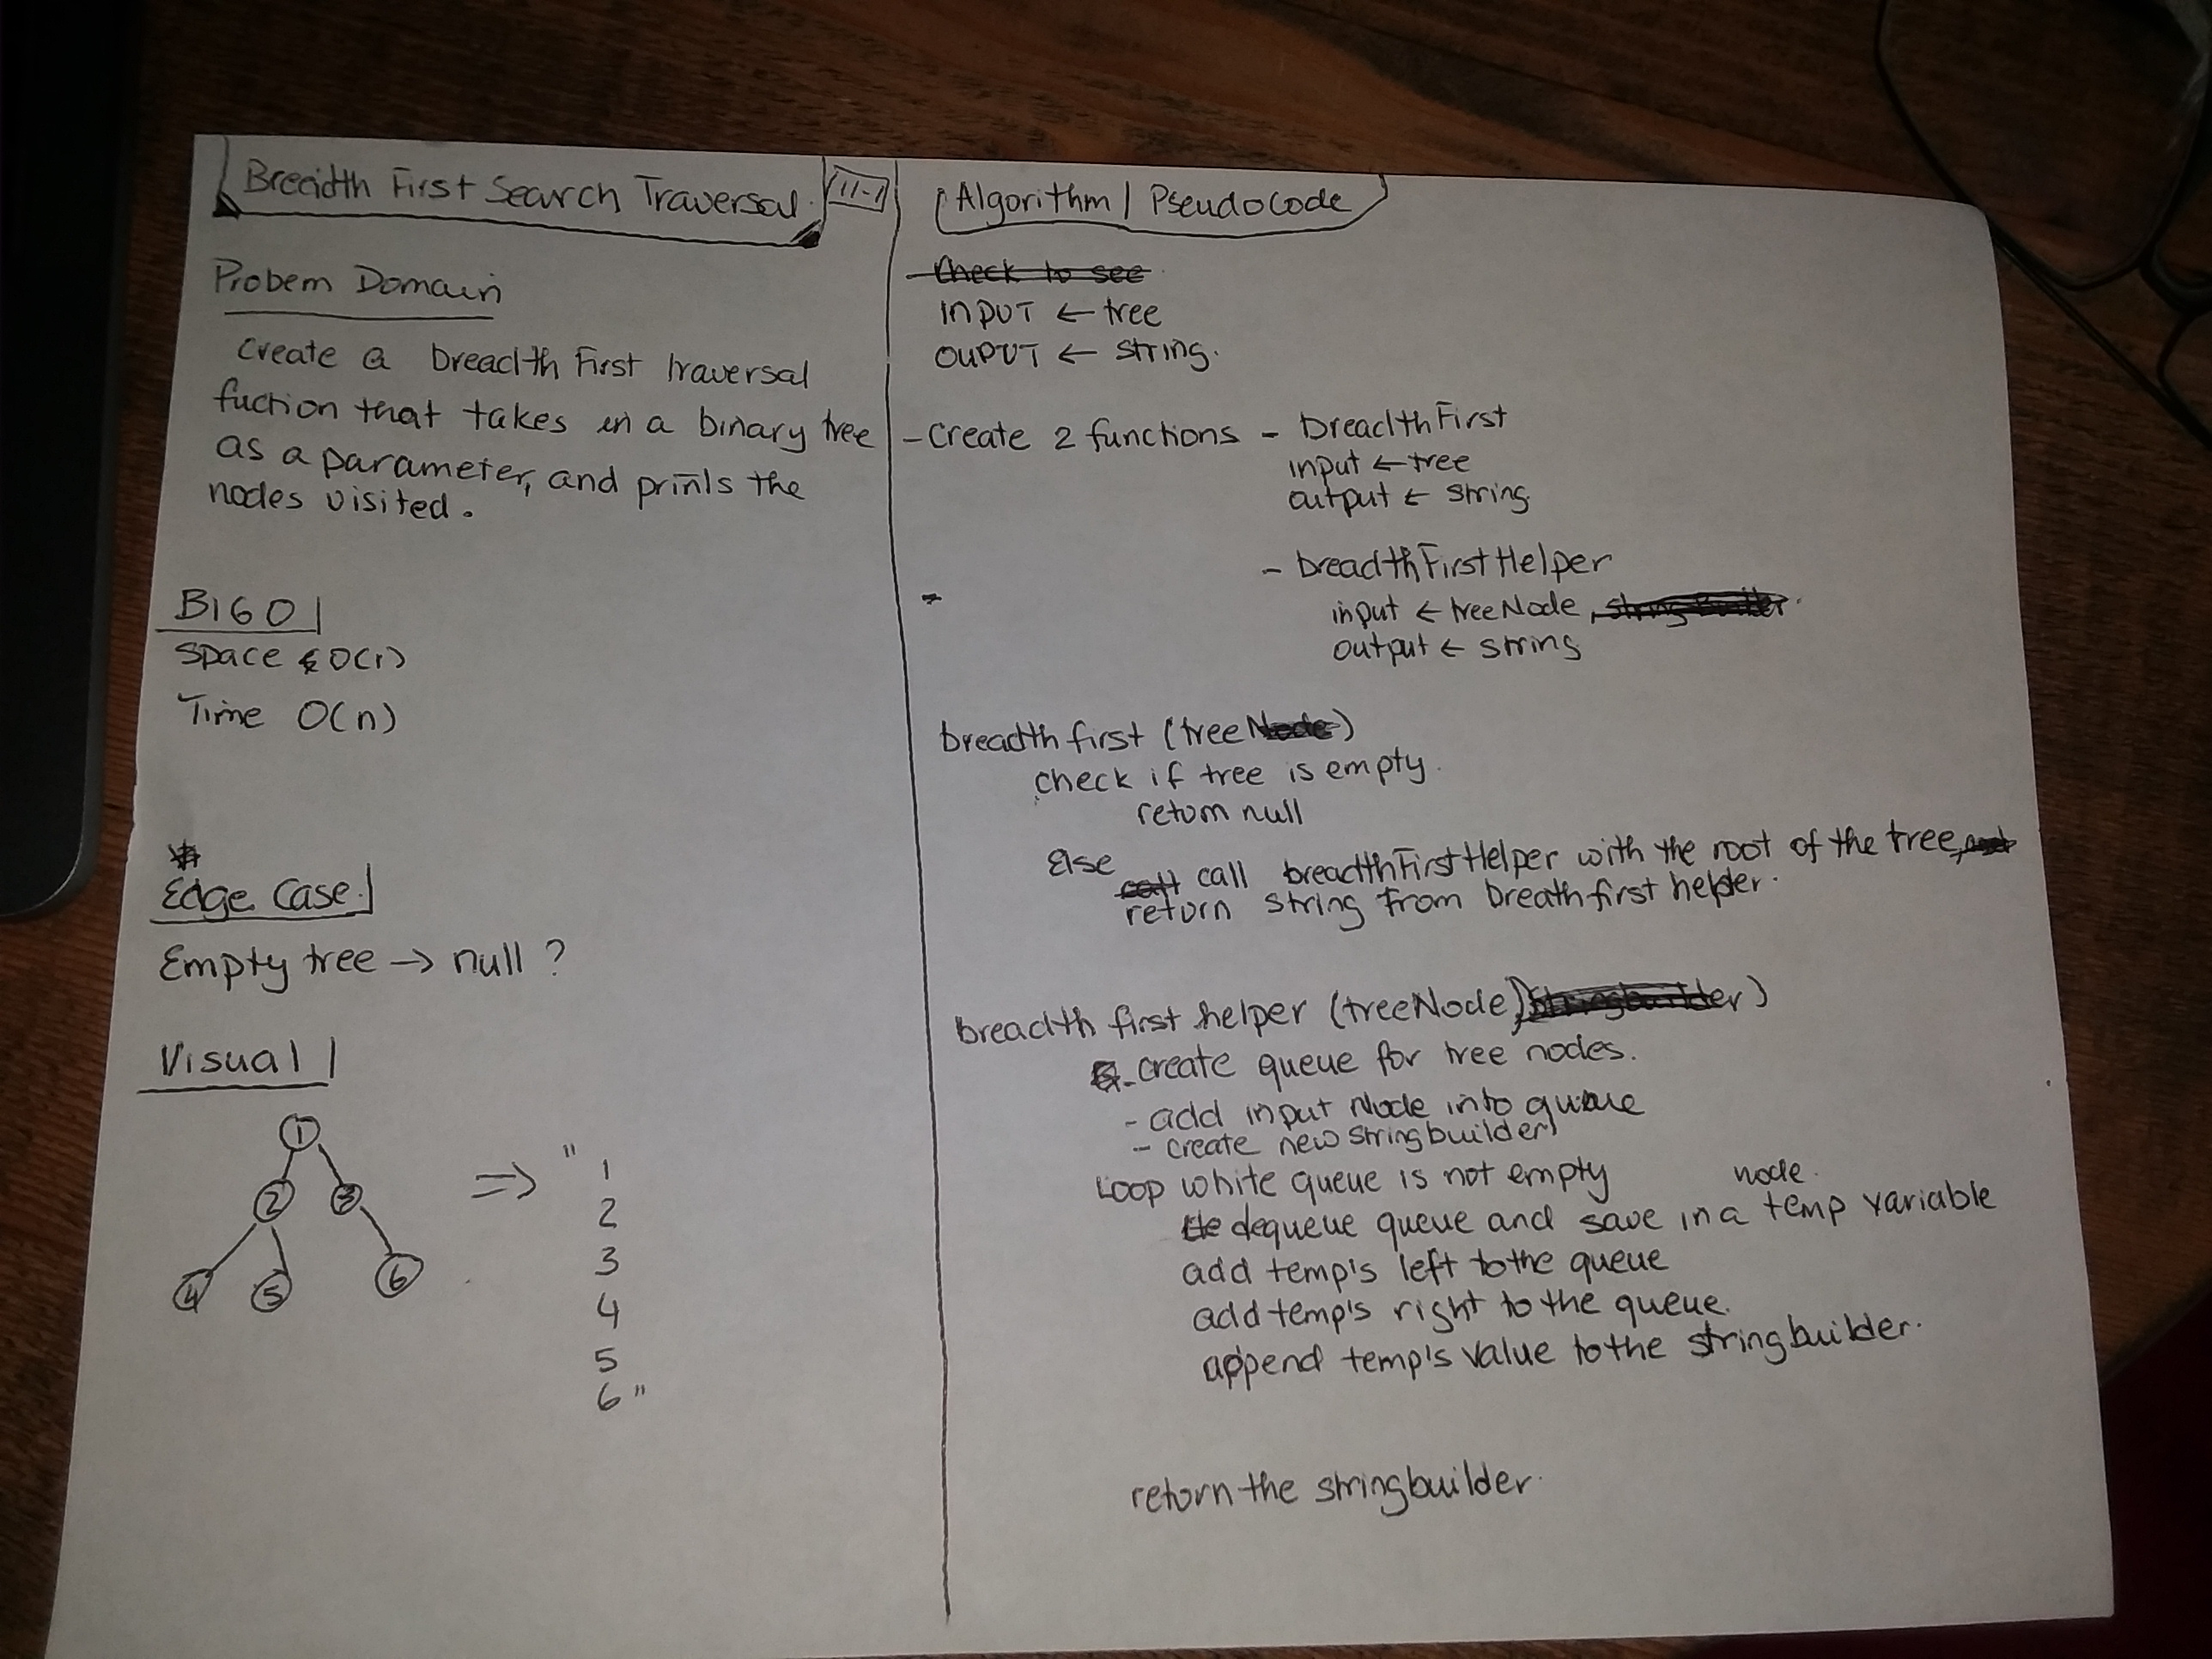 Breadth First Search Traversal
11-1
Probem Domain
create a breadth First traversal
fuction that takes in a binary tree
as a parameter, and prints the
nodes visited.
BIGO
Space O(1)
Time O(n)
Edge Case
Empty tree → null ?
Visual
1
2 3
4 5 6
⇒ " 1
2
3
4
5
6 "
Algorithm | Pseudocode
Check to see
INPUT ← tree
OUPUT ← string.
- Create 2 functions - breadthFirst
input ← tree
output ← string
- breadthFirstHelper
input ← treeNode, StringBuilder
output ← string
breadth first (treeNode)
check if tree is empty.
return null
Else
call call breadthFirstHelper with the root of the tree,
return string from breathfirst helper.
breadth first helper (treeNode, Stringbuilder)
- create queue for tree nodes.
- add input Node into queue
- create new stringbuilder
Loop while queue is not empty
dequeue queue and save in a temp node variable
add temp's left to the queue
add temp's right to the queue.
append temp's value to the stringbuilder.
return the stringbuilder.